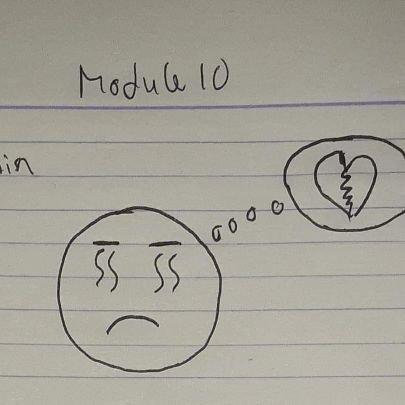 Module 10